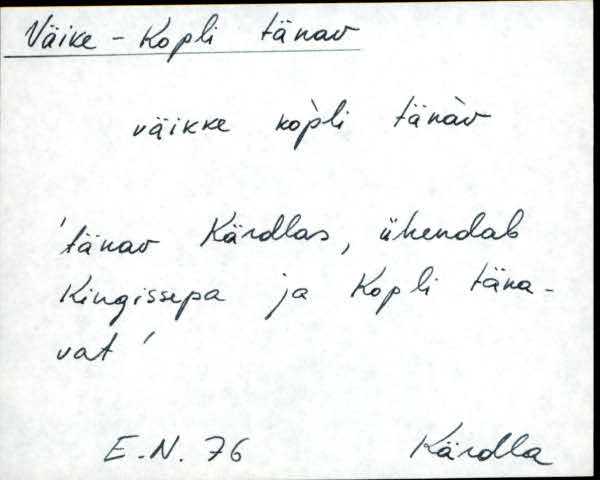 Väike-Kopli tänav
väikke kòpli tänàv
'tänav Kärdlas, ühendab
Kingissepa ja Kopli täna-
vat'
E.N. 76 Kärdla